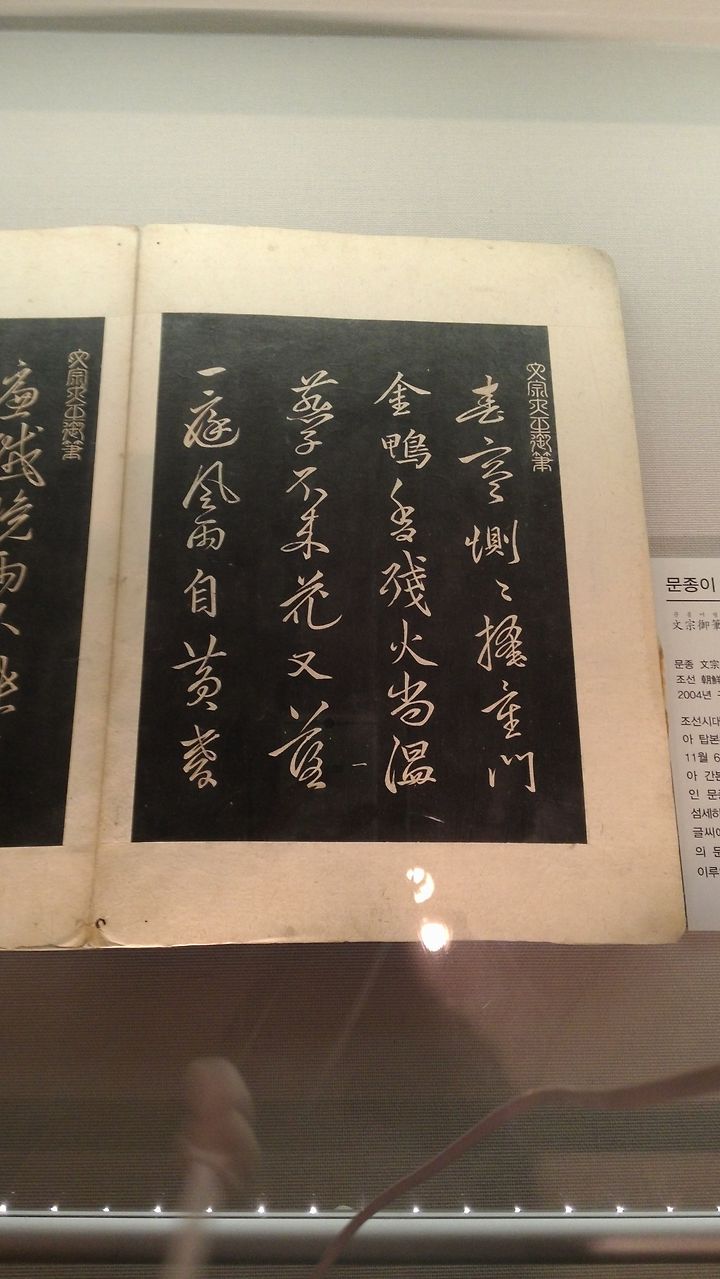 文宗大王御筆
春寒惻〻掩重門
金鴨香殘火尚溫
燕子不來花又落
一庭風雨自黃昏
文宗大王御筆
晚雨不
문종이
문종어필
文宗御筆
문종 文宗
조선 朝鮮
2004년
조선시대
아 탑본
11월 6
아 간
인 문
섬세하
글씨에
의 문
이루